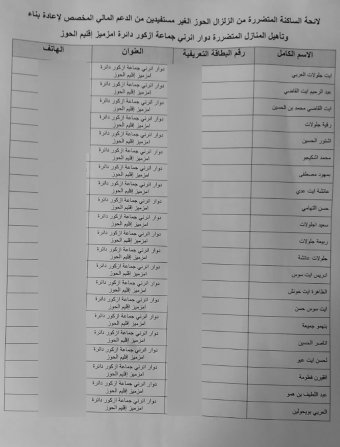 لائحة الساكنة المتضررة من الزلزال الحوز الغير مستفيدين من الدعم المالي المخصص لإعادة بناء
وتأهيل المنازل المتضررة دوار انرني جماعة ازكور دائرة امزميز إقليم الحوز
الاسم الكامل رقم البطاقة التعريفية العنوان الهاتف
ايت جلولات العربي دوار انرني جماعة ازكور دائرة امزميز إقليم الحوز
عبد الرحيم ايت القاضي دوار انرني جماعة ازكور دائرة امزميز إقليم الحوز
ايت القاضي محمد بن الحسين دوار انرني جماعة ازكور دائرة امزميز إقليم الحوز
رقية جلولات دوار انرني جماعة ازكور دائرة امزميز إقليم الحوز
الحسين دوار انرني جماعة ازكور دائرة امزميز إقليم الحوز
محمد دوار انرني جماعة ازكور دائرة امزميز إقليم الحوز
مصطفى دوار انرني جماعة ازكور دائرة امزميز إقليم الحوز
عائشة ايت عدي دوار انرني جماعة ازكور دائرة امزميز إقليم الحوز
حسن التهامي دوار انرني جماعة ازكور دائرة امزميز إقليم الحوز
سعيد اجلولات دوار انرني جماعة ازكور دائرة امزميز إقليم الحوز
ربيعة جلولات دوار انرني جماعة ازكور دائرة امزميز إقليم الحوز
جلولات عائشة دوار انرني جماعة ازكور دائرة امزميز إقليم الحوز
ادريس ايت سوس دوار انرني جماعة ازكور دائرة امزميز إقليم الحوز
الطاهرة ايت دوار انرني جماعة ازكور دائرة امزميز إقليم الحوز
ايت سوس حسن دوار انرني جماعة ازكور دائرة امزميز إقليم الحوز
جميعة دوار انرني جماعة ازكور دائرة امزميز إقليم الحوز
الحسين دوار انرني جماعة ازكور دائرة امزميز إقليم الحوز
لحسن ايت عبو دوار انرني جماعة ازكور دائرة امزميز إقليم الحوز
فطومة دوار انرني جماعة ازكور دائرة امزميز إقليم الحوز
عبد اللطيف بن عمر دوار انرني جماعة ازكور دائرة امزميز إقليم الحوز
العربي دوار انرني جماعة ازكور دائرة امزميز إقليم الحوز